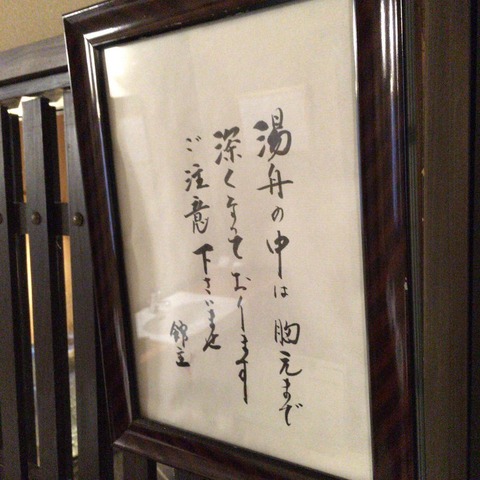 湯舟の中は胸元まで
深くなっております
ご注意下さいませ
館主